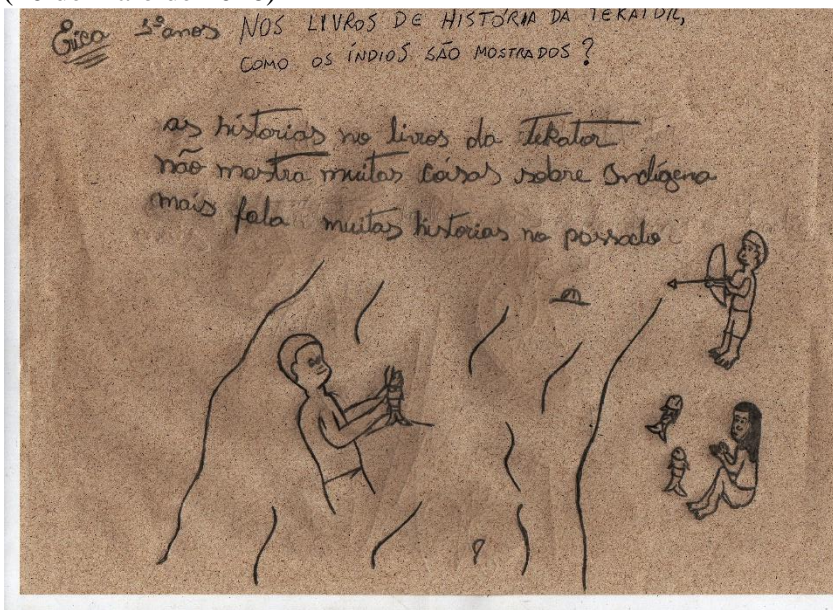 Érica anos NOS LIVROS DE HISTÓRIA DA TEKATOR,
COMO OS ÍNDIOS SÃO MOSTRADOS ?
as historias no livros da Tekator
não mostra muitas coisas sobre Indígena
mais fala muitas historias no passado